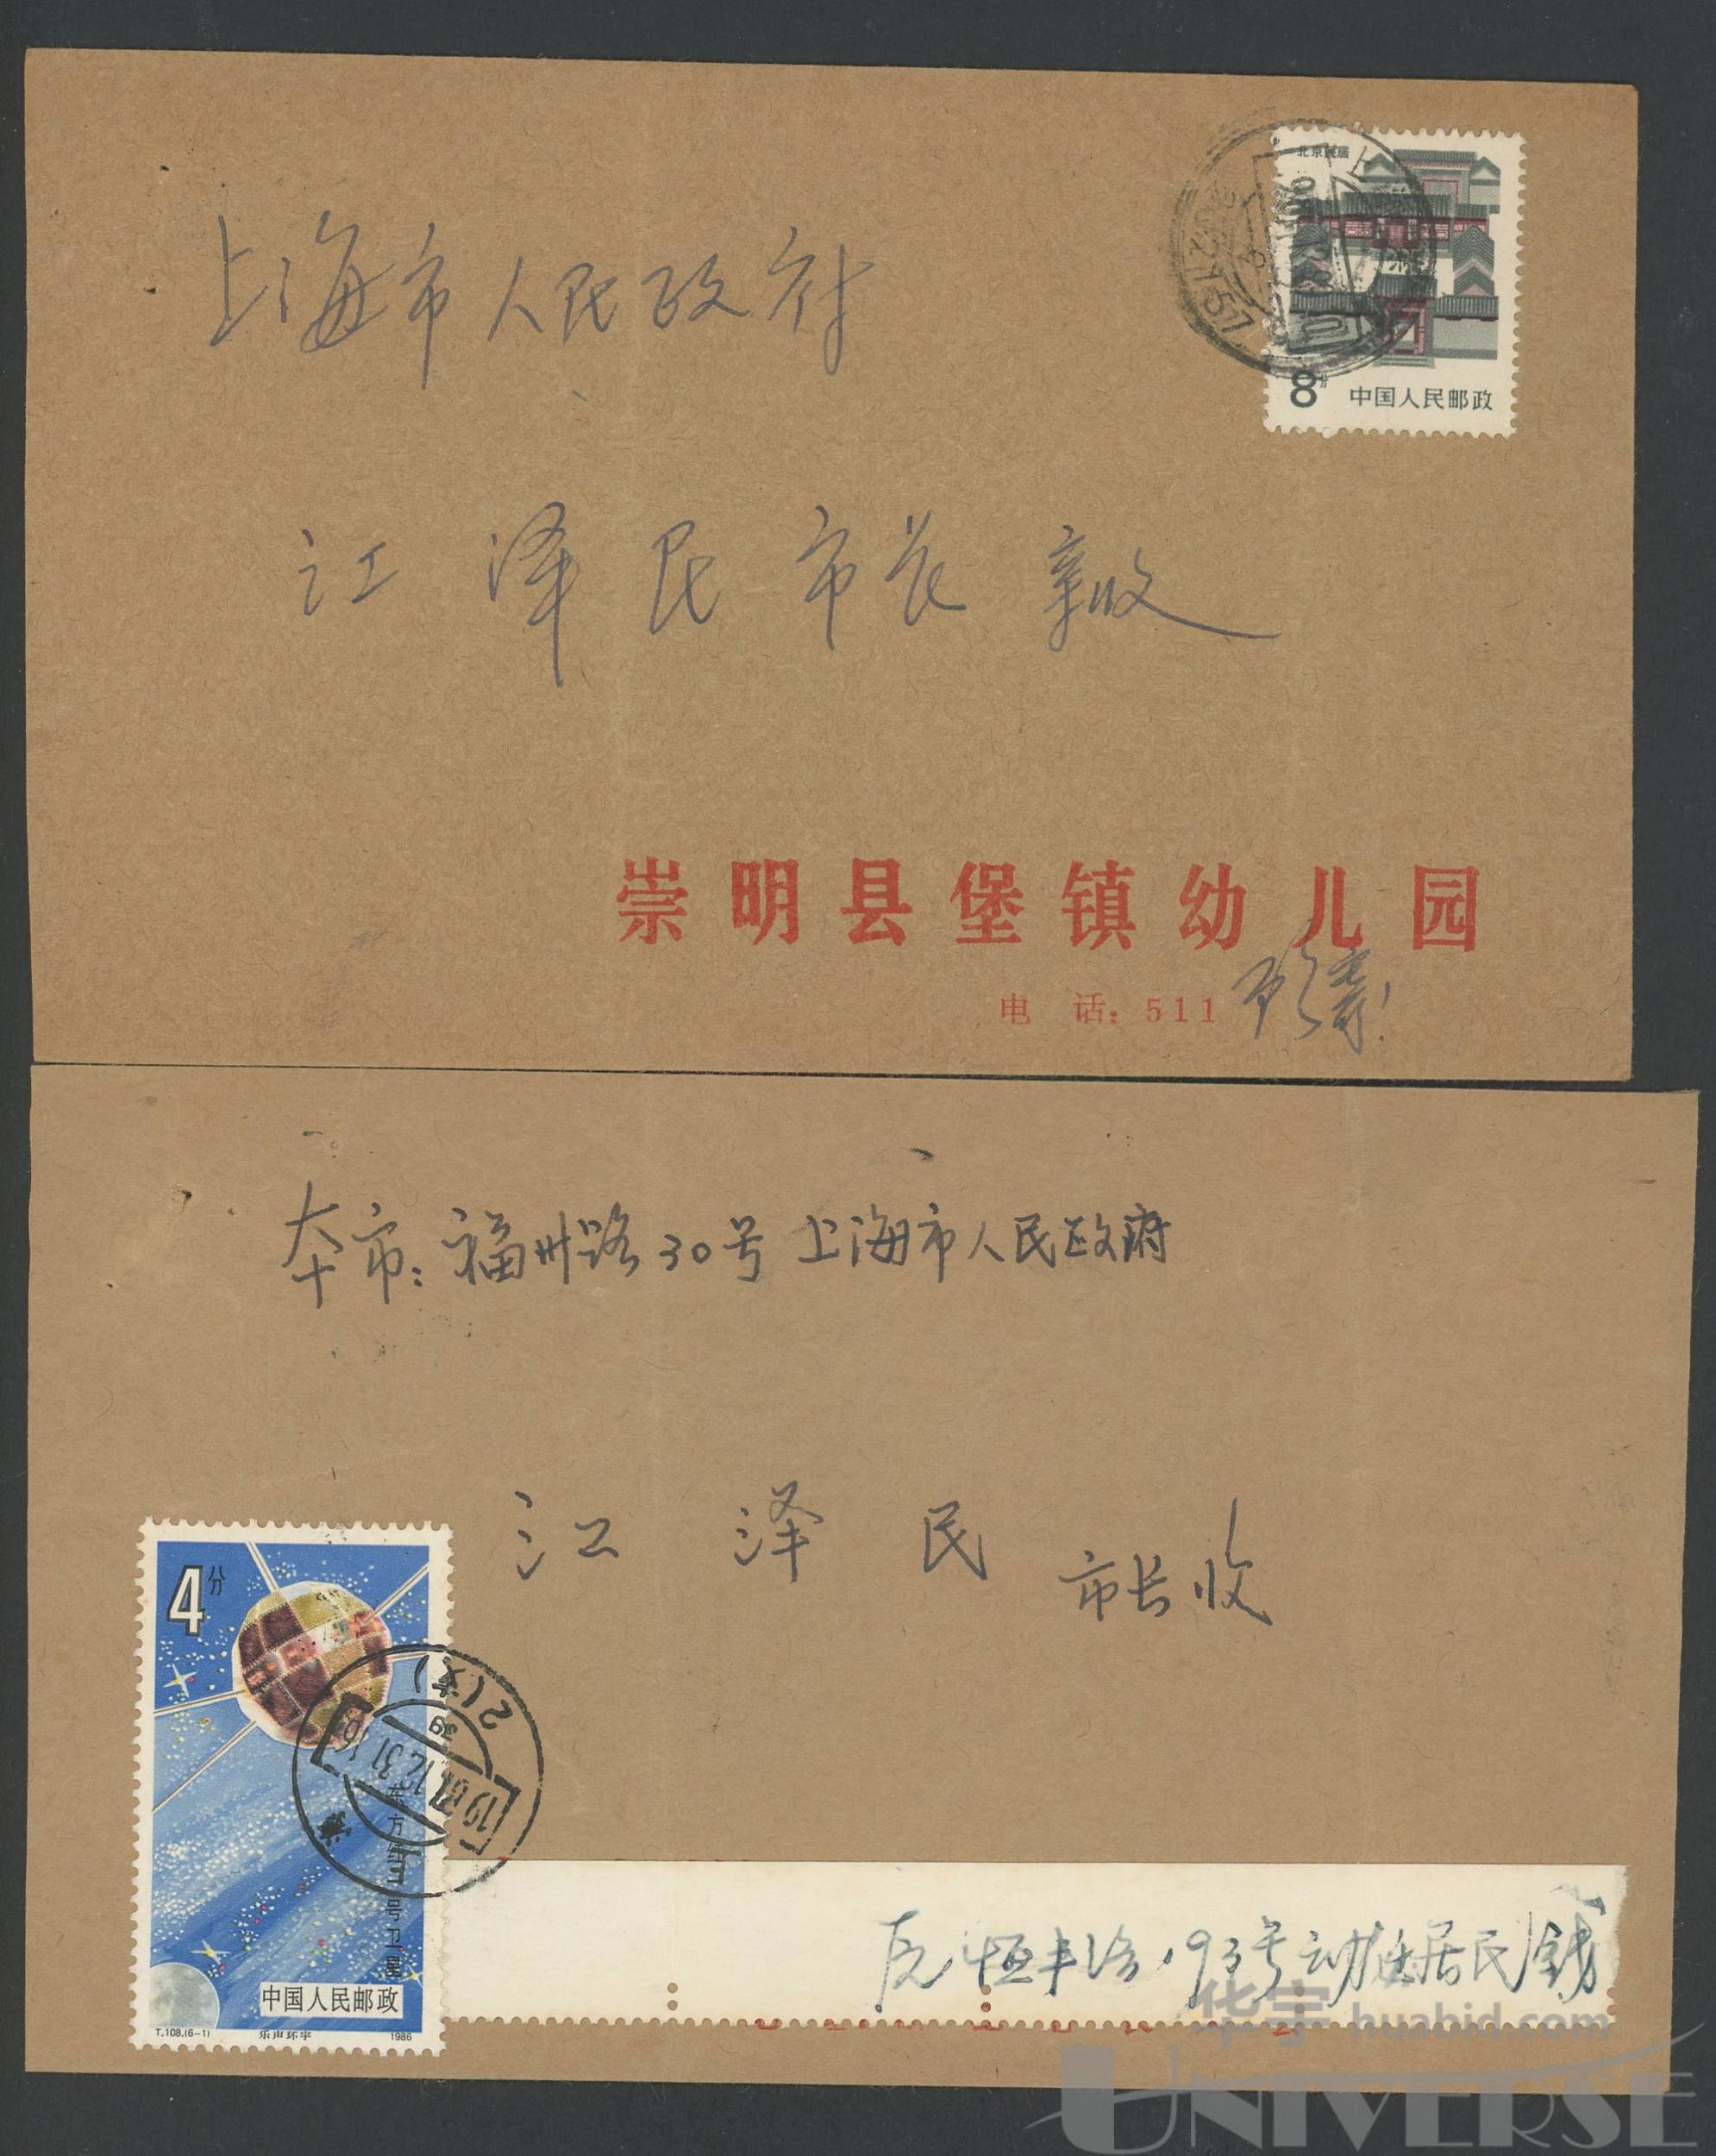 北京民居
8分 中国人民邮政
上海市人民政府
江泽民市长亲收
崇明县堡镇幼儿园
电 话: 511
本市: 福州路30号 上海市人民政府
江泽民 市长收
4分
2(支)
1987.12.31 16
东方红一号卫星
中国人民邮政
T.108.(6-1) 乐声环宇 1986
原恒丰路193号动迁居民钱
华宇 huabid.com
UNIVERSE